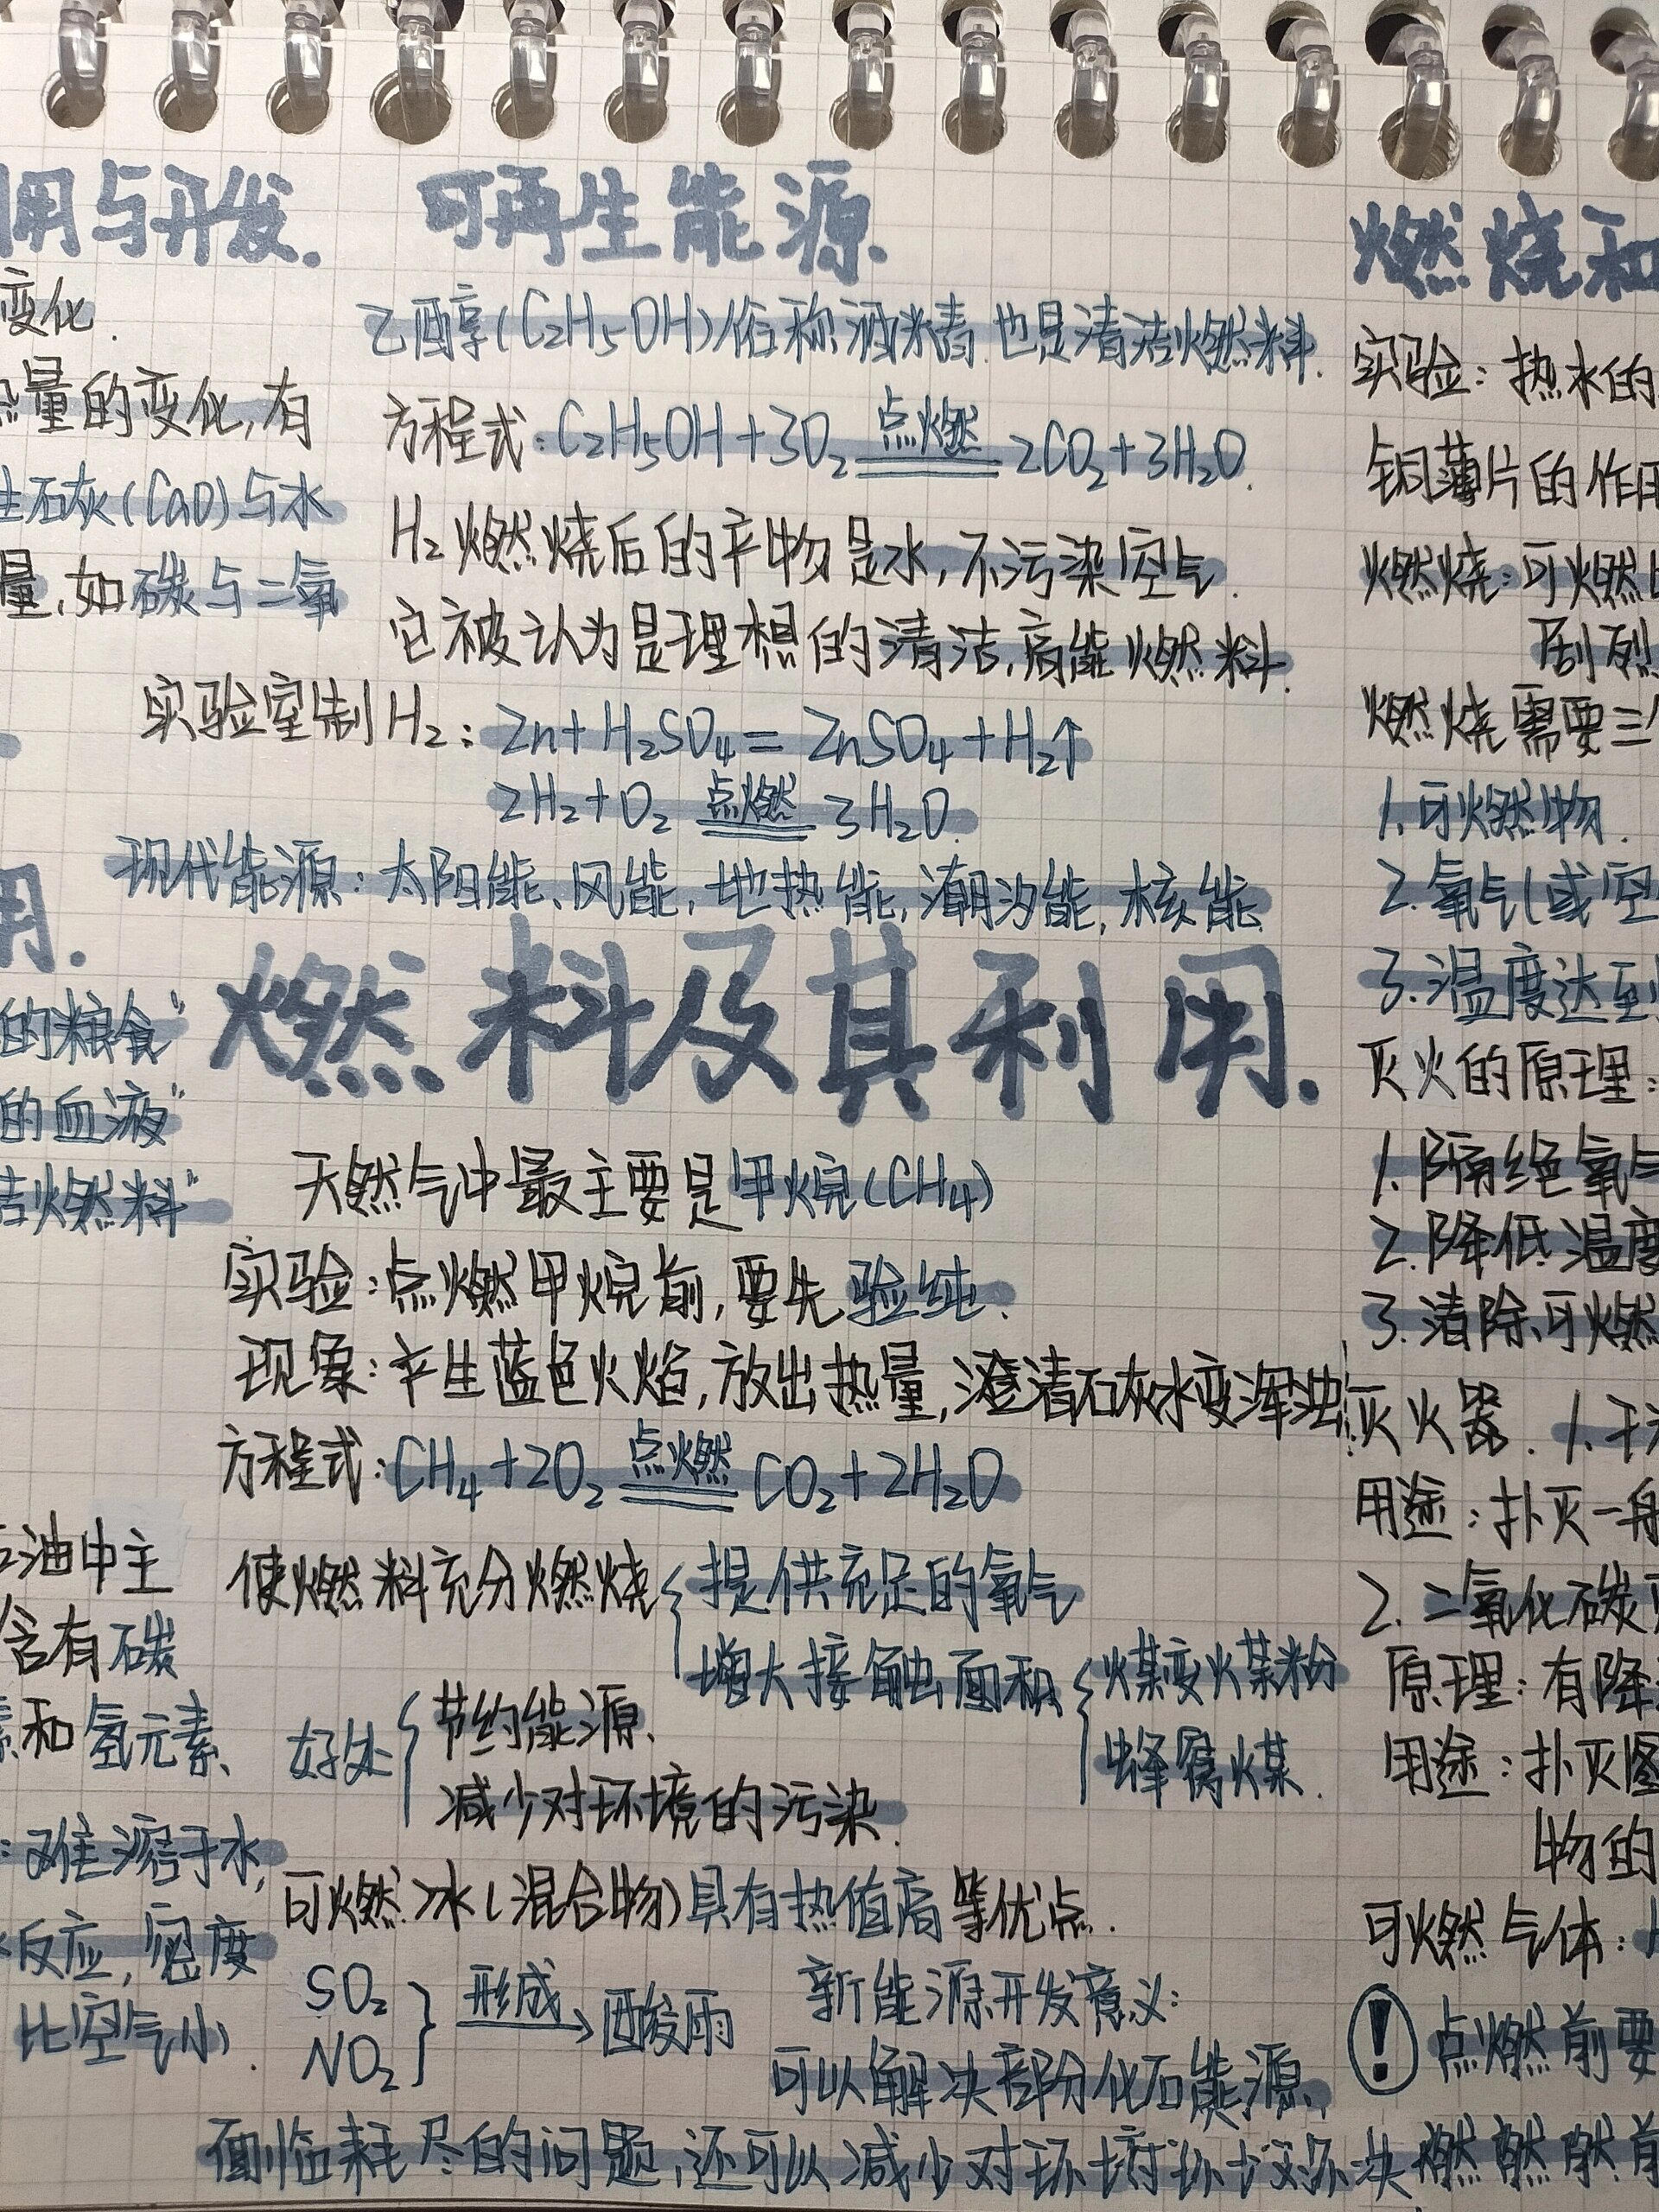 用与开发.
变化.
量的变化,有
石灰(CaO)与水
量,如碳与二氧
用.
的粮食"
的血液"
洁燃料"
油中主
含有碳
素和氢元素、
:难溶于水,
反应,密度
比空气小.
可再生能源.
乙醇(C₂H₅OH)俗称酒精.也是清洁燃料.
方程式:C₂H₅OH+3O₂ 点燃 2CO₂+3H₂O.
H₂燃烧后的产物是水,不污染空气.
它被认为是理想的清洁,高能燃料.
实验室制H₂:Zn+H₂SO₄=ZnSO₄+H₂↑
2H₂+O₂ 点燃 3H₂O.
现代能源:太阳能、风能,地热能,潮汐能,核能
燃料及其利用.
天然气中最主要是甲烷(CH₄)
实验:点燃甲烷前,要先验纯.
现象:产生蓝色火焰,放出热量,澄清石灰水变浑浊.
方程式:CH₄+2O₂ 点燃 CO₂+2H₂O
使燃料充分燃烧 { 提供充足的氧气
增大接触面积 { 煤变煤粉
蜂窝煤.
好处 { 节约能源.
减少对环境的污染.
可燃冰(混合物)具有热值高等优点.
SO₂
NO₂ } 形成→酸雨
新能源开发意义:
可以解决部分化石能源
面临耗尽的问题,还可以减少对环境
燃烧和
实验:热水的
铜薄片的作用
燃烧:可燃
剧烈
燃烧需要三
1.可燃物.
2.氧气(或空
3.温度达到
灭火的原理:
1.隔绝氧气
2.降低温度
3.清除可燃
灭火器.1.干
用途:扑灭一般
2.二氧化碳灭
原理:有降
用途:扑灭图
物的
可燃气体:
! 点燃前要